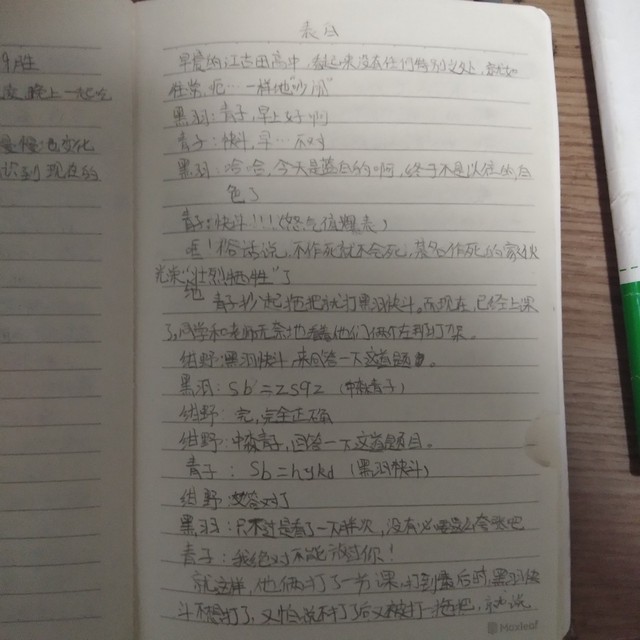 9班
晚上一起吃
慢慢的变化
到现在的
表白
早晨的江古田高中,看起来没有任何特别之处,就如
往常般…一样地"吵闹"
黑羽:青子,早上好啊
青子:快斗,早…不对
黑羽:哈哈,今天是蓝白的啊,终于不是以往的白
色了
青子:快斗!!!(怒气值爆表)
哇!俗话说,不作死就不会死,某名作死的家伙
光荣地"壮烈牺牲"了
青子抄起拖把就打黑羽快斗。而现在,已经上课
了,同学和老师无奈地看着他们俩在那打架。
绀野:黑羽快斗,来回答一下这道题目。
黑羽:Sb=zsqz(中森青子)
绀野:完,完全正确
绀野:中森青子,回答一下这道题目。
青子:Sb=hykd(黑羽快斗)
绀野:又答对了
黑羽:只不过是看了一下胖次,没有必要这么夸张吧
青子:我绝对不能放过你!
就这样,他俩打了一节课,打到最后时,黑羽快
斗不想打了,又怕说不打了后又被打一拖把,就说
Maxleaf